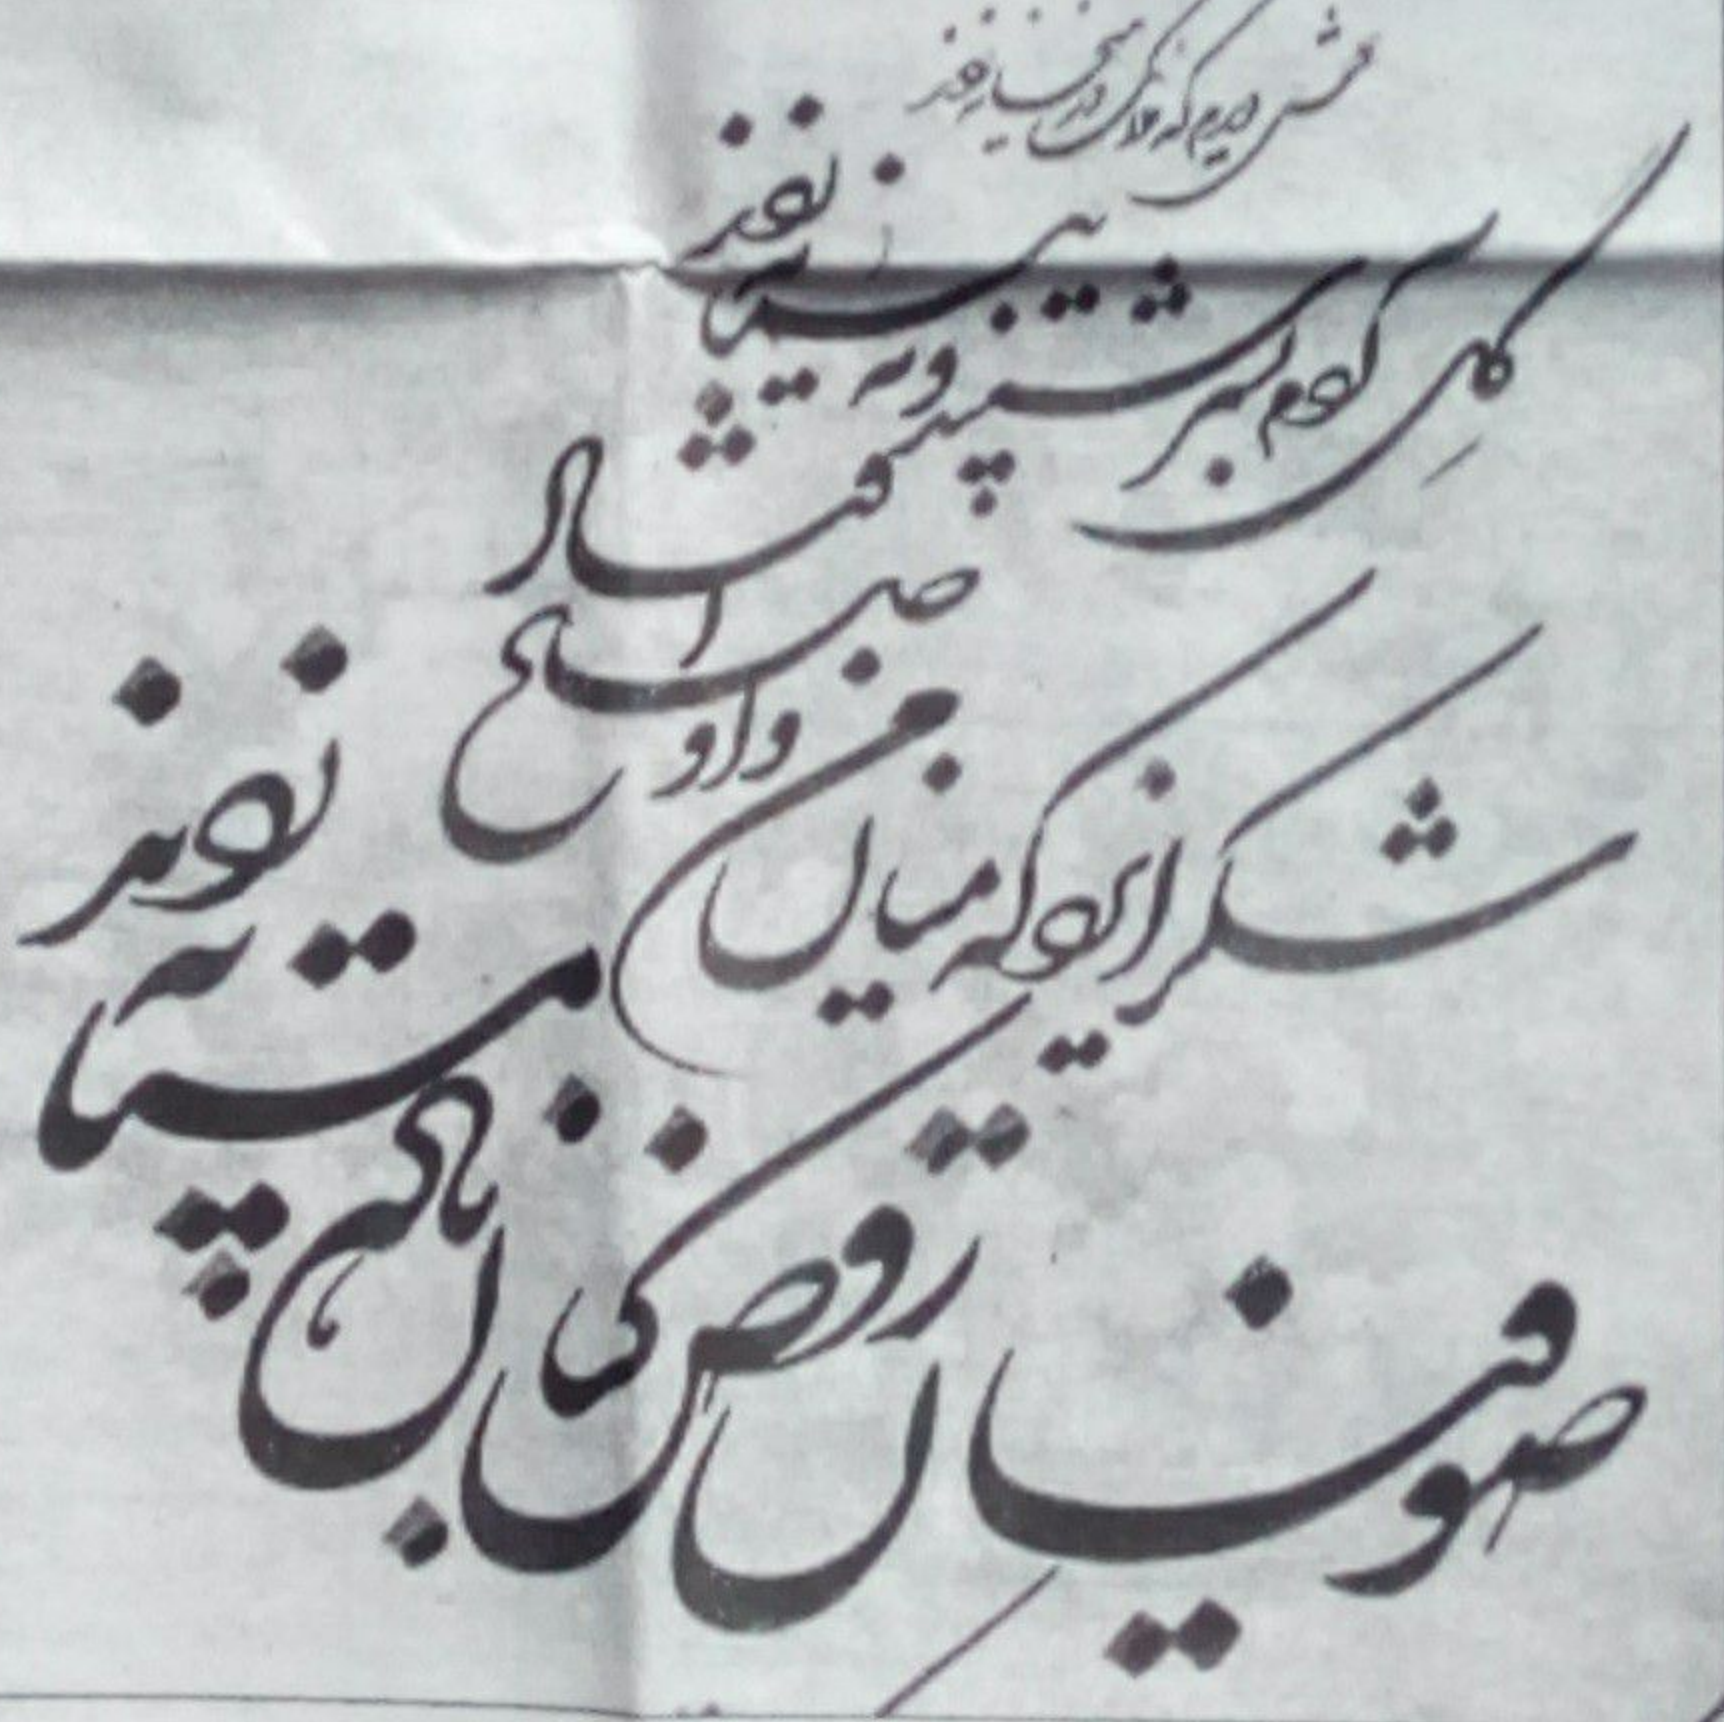 دوش دیدم که ملائک در میخانه زدند
گلِ آدم بسرشتند و به پیمانه زدند
شکر ایزد که میان من و او صلح افتاد
صوفیان رقص کنان مستانه زدند